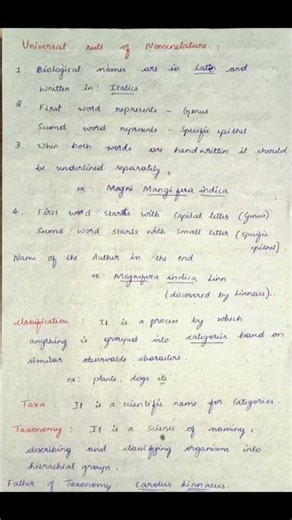 Universal rule of Nomenclature :
1. Biological names are in Latin and
written in : Italics.
2.
First word represents – Genus
Second word represents – Specific epithet
3. When both words are handwritten it should
be underlined separately,
ex : Magni Mangifera indica
4. First word starts with Capital letter (Genus)
Second word starts with small letter (Specific
epithet)
Name of the Author in the end
ex: Magnifera indica Linn
(discovered by Linneaus).
Classification : It is a process by which
anything is grouped into categories based on
similar observable characters.
ex: plants, dogs etc
Taxa It is a scientific name for Categories.
Taxonomy : It is a science of naming,
describing and classifying organisms into
hierachial groups.
Father of Taxonomy: Carolus Linnaeus.